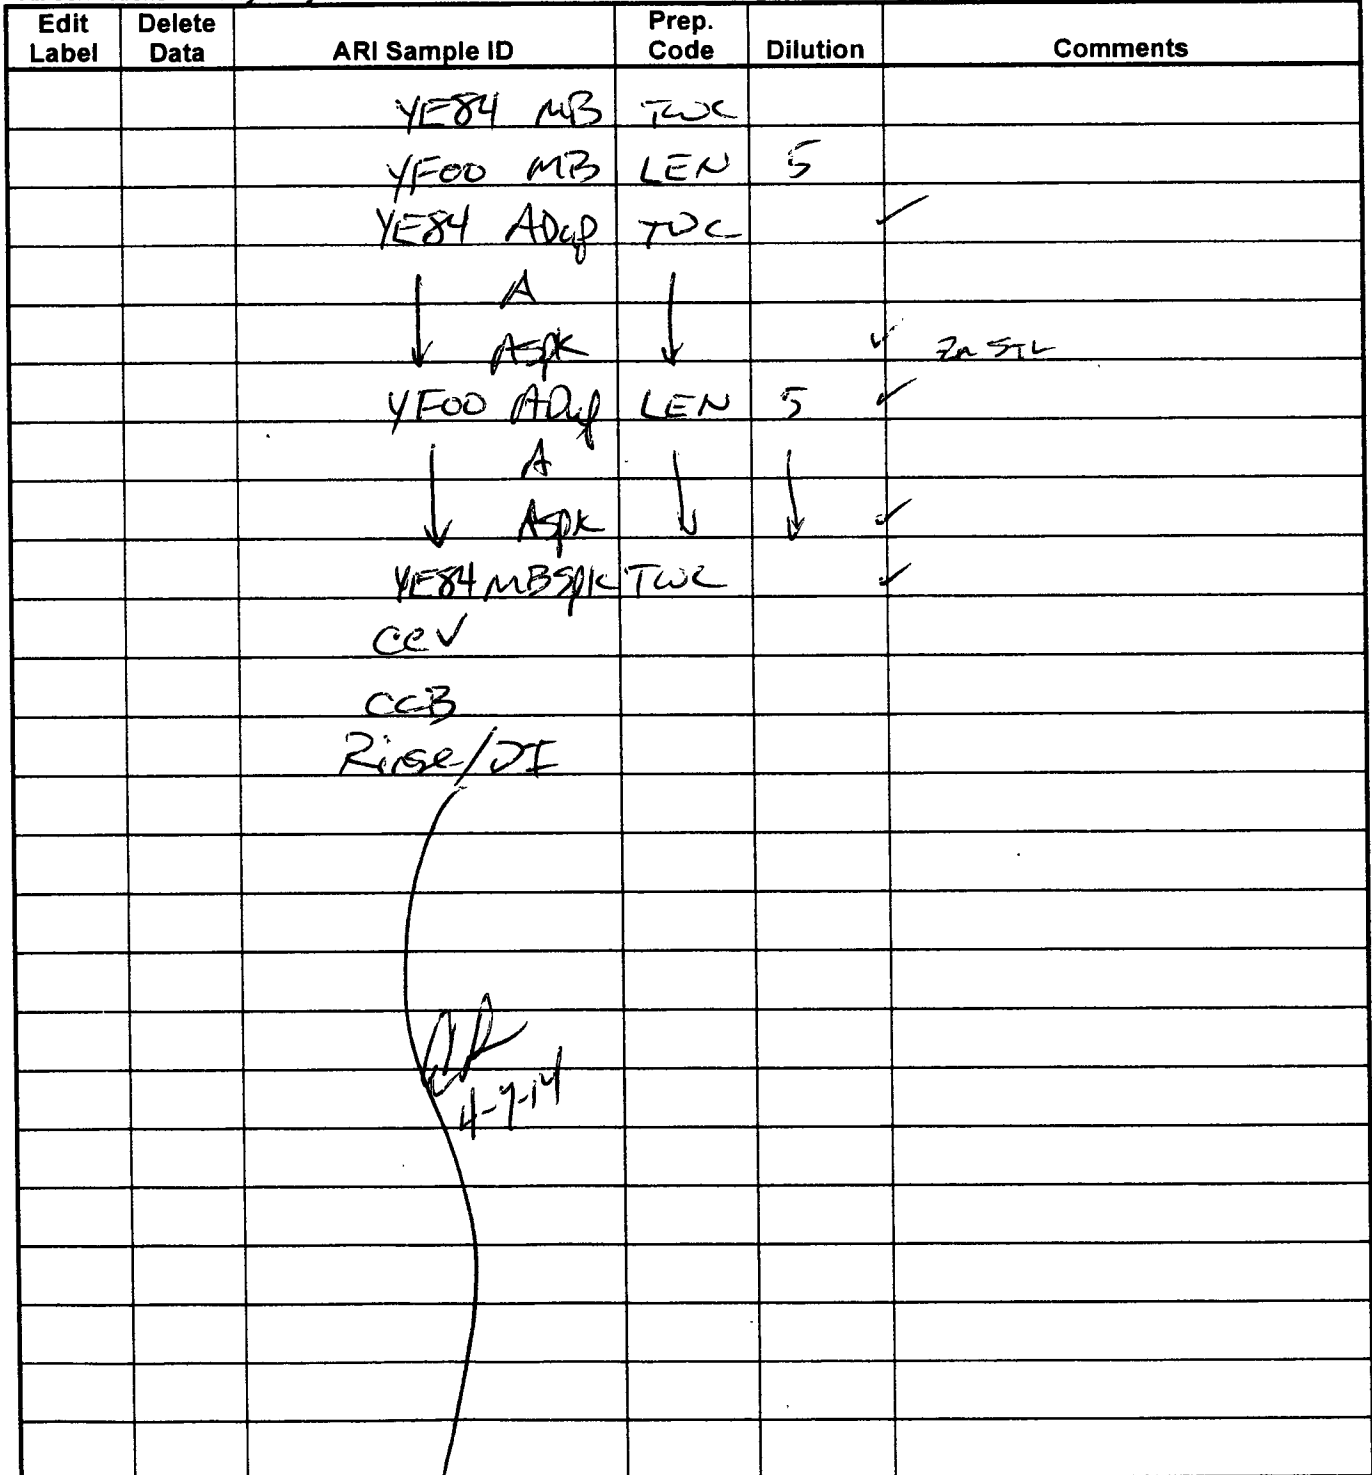 Edit Label Delete Data ARI Sample ID Prep. Code Dilution Comments
YE84 MB TWC
YF00 MB LEN 5
YE84 ADup TWC ✓
↓ A ↓
ASpk ✓ Zn STL
YF00 ADup LEN 5 ✓
↓ A ↓ ↓
ASpk ✓
YE84 MBSpk TWC ✓
CCV
CCB
Rinse/DI
4-9-14